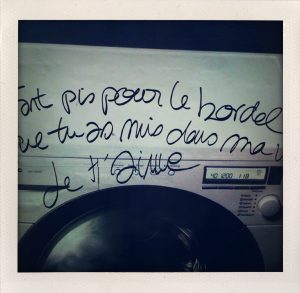 ant pis pour le bordel
que tu as mis dans ma v
Je t'aime
40 1200 1:18